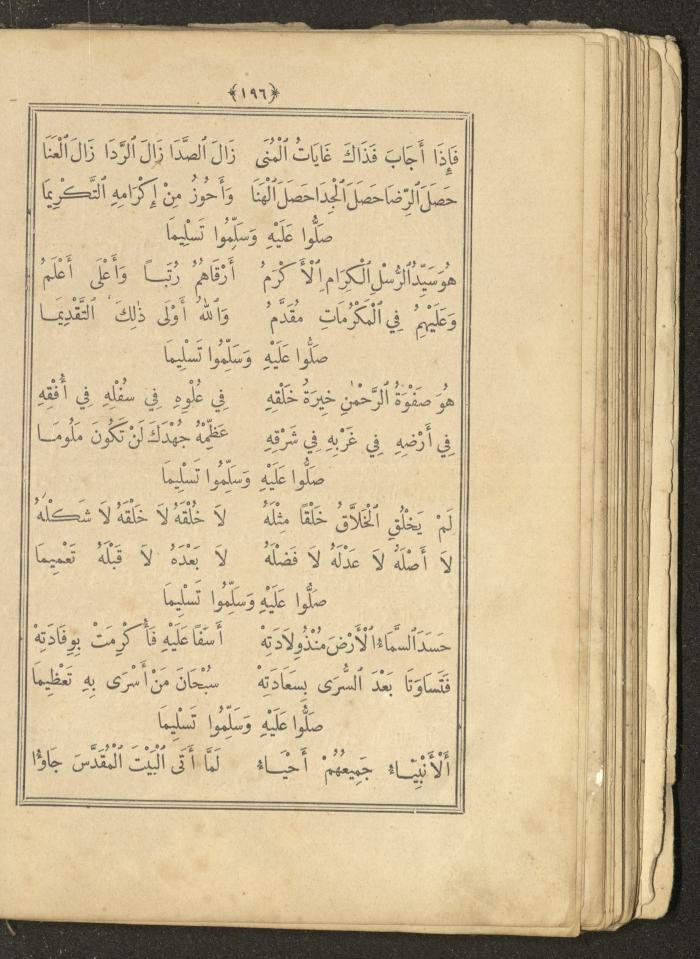 ﴿١٩٦﴾
فَإِذَا أَجَابَ فَذَاكَ غَايَاتُ الْمُنَى زَالَ الصَّدَا زَالَ الرَّدَا زَالَ الْعَنَا
حَصَلَ الرِّضَا حَصَلَ الْجِدَا حَصَلَ الْهَنَا وَأَحُوزُ مِنْ إِكْرَامِهِ التَّكْرِيمَا
صَلُّوا عَلَيْهِ وَسَلِّمُوا تَسْلِيمَا
هُوَ سَيِّدُ الرُّسْلِ الْكِرَامِ الْأَكْرَمُ أَرْقَاهُمُ رُتَبًا وَأَعْلَى أَعْلَمُ
وَعَلَيْهِمُ فِي الْمَكْرُمَاتِ مُقَدَّمُ وَاللهُ أَوْلَى ذٰلِكَ التَّقْدِيمَا
صَلُّوا عَلَيْهِ وَسَلِّمُوا تَسْلِيمَا
هُوَ صَفْوَةُ الرَّحْمٰنِ خِيرَةُ خَلْقِهِ فِي عُلْوِهِ فِي سُفْلِهِ فِي أُفْقِهِ
فِي أَرْضِهِ فِي غَرْبِهِ فِي شَرْقِهِ عَظِّمْهُ جُهْدَكَ لَنْ تَكُونَ مَلُومَا
صَلُّوا عَلَيْهِ وَسَلِّمُوا تَسْلِيمَا
لَمْ يَخْلُقِ الْخَلَّاقُ خَلْقًا مِثْلَهُ لَا خُلْقَهُ لَا خَلْقَهُ لَا شَكْلَهُ
لَا أَصْلَهُ لَا عَدْلَهُ لَا فَضْلَهُ لَا بَعْدَهُ لَا قَبْلَهُ تَعْمِيمَا
صَلُّوا عَلَيْهِ وَسَلِّمُوا تَسْلِيمَا
حَسَدَ السَّمَاءُ الْأَرْضَ مُنْذُ وِلَادَتِهْ أَسَفًا عَلَيْهِ فَأُكْرِمَتْ بِوِفَادَتِهْ
فَتَسَاوَتَا بَعْدَ السُّرَى بِسَعَادَتِهْ سُبْحَانَ مَنْ أَسْرَى بِهِ تَعْظِيمَا
صَلُّوا عَلَيْهِ وَسَلِّمُوا تَسْلِيمَا
أَلْأَنْبِيَاءُ جَمِيعُهُمْ أَحْيَاءُ لَمَّا أَتَى الْبَيْتَ الْمُقَدَّسَ جَاؤُا